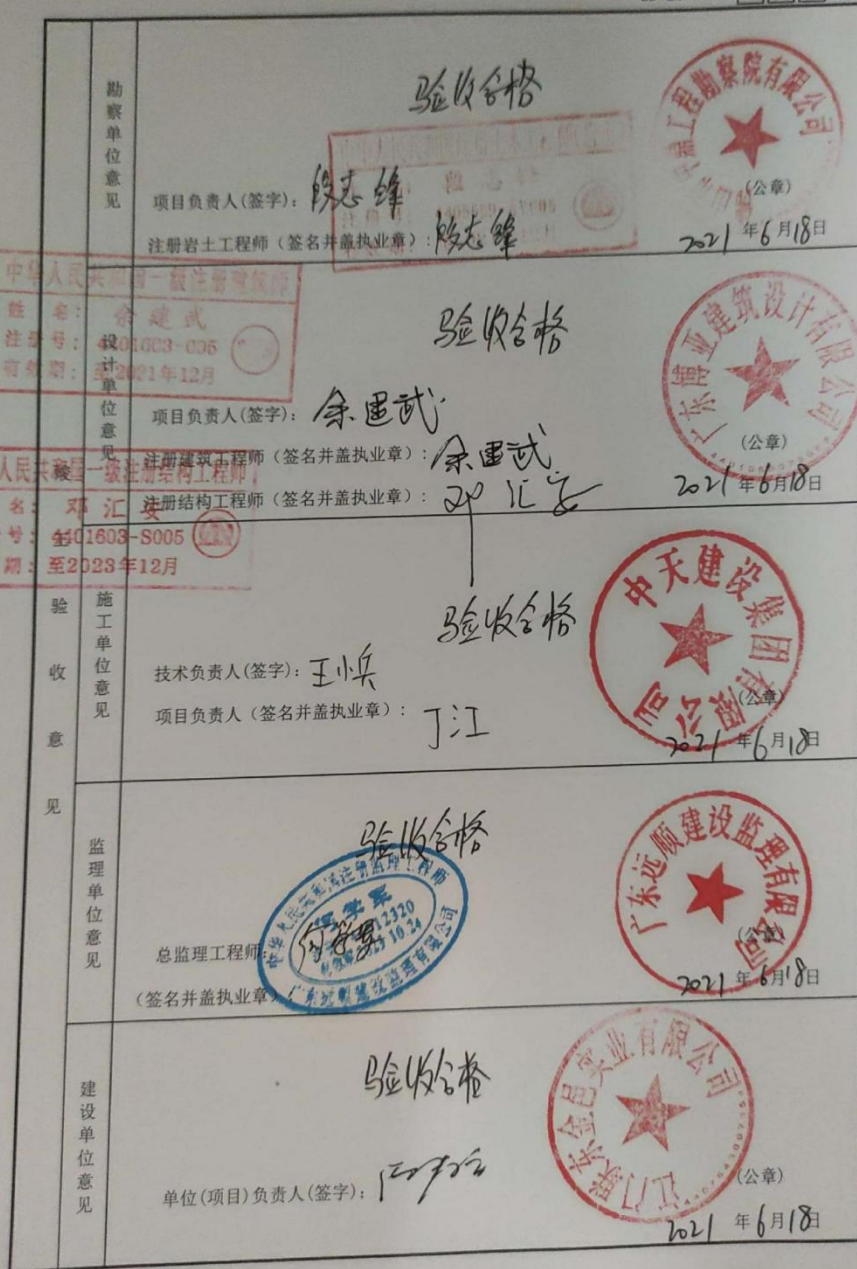 竣工验收意见
勘察单位意见
验收合格
项目负责人(签字): 段志锋
注册岩土工程师（签名并盖执业章）: 段志锋
工程勘察院有限公司
(公章)
2021年6月18日
中华人民共和国一级注册建筑师
姓 名: 余建武
注册号: 4401603-005
有效期: 至2021年12月
设计单位意见
验收合格
项目负责人(签字): 余建武
注册建筑工程师（签名并盖执业章）: 余建武
注册结构工程师（签名并盖执业章）: 邓汇安
广东博亚建筑设计有限公司
(公章)
2021年6月18日
人民共和国一级注册结构工程师
名: 邓汇安
号: 4401603-S005
期: 至2023年12月
施工单位意见
验收合格
技术负责人(签字): 王小兵
项目负责人（签名并盖执业章）: 丁江
中天建设集团有限公司
(公章)
2021年6月18日
监理单位意见
验收合格
总监理工程师:
(签名并盖执业章):
中华人民共和国注册监理工程师
12320
广东远顺建设监理有限公司
广东远顺建设监理有限公司
(公章)
2021年6月18日
建设单位意见
验收合格
单位(项目)负责人(签字):
江门联东金邑实业有限公司
(公章)
2021年6月18日